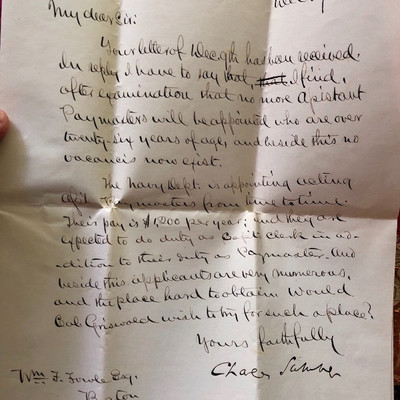 My dear Sir:
Your letter of Dec. 9th has been received.
In reply I have to say that, that I find,
after examination that no more Assistant
Paymasters will be appointed who are over
twenty-six years of age, and beside this no
vacancies now exist.
The Navy Dept. is appointing acting
Ass't Paymasters from time to time.
Their pay is $1,200 per year; and they are
expected to do duty as Capt's clerk in ad-
dition to their duty as Paymaster. And
beside this applicants are very numerous,
and the place hard to obtain. Would
Cab Griswold wish to try for such a place?
Yours faithfully
Charles Sumner
Wm. F. Fowle Esq.
Boston